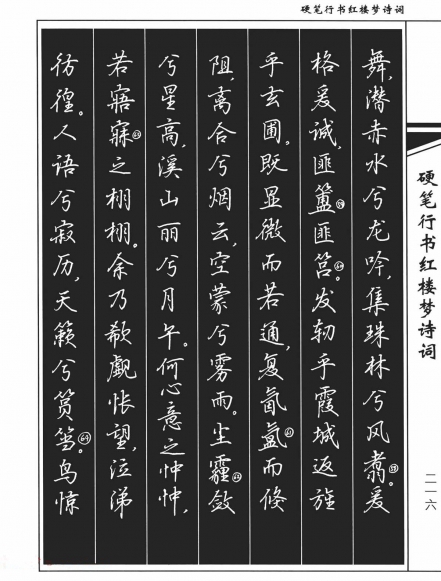 硬笔行书红楼梦诗词
舞,潜赤水兮龙吟,集珠林兮凤翥。爰
格爰诚,匪簠匪筥。发轫乎霞城,返旌
乎玄圃。既显微而若通,复氤氲而倏
阻,离合兮烟云,空蒙兮雾雨。尘霾敛
兮星高,溪山丽兮月午。何心意之忡忡,
若寤寐之栩栩。余乃欷觑怅望,泣涕
彷徨。人语兮寂历,天籁兮筼筜。鸟惊
硬笔行书红楼梦诗词
二一六